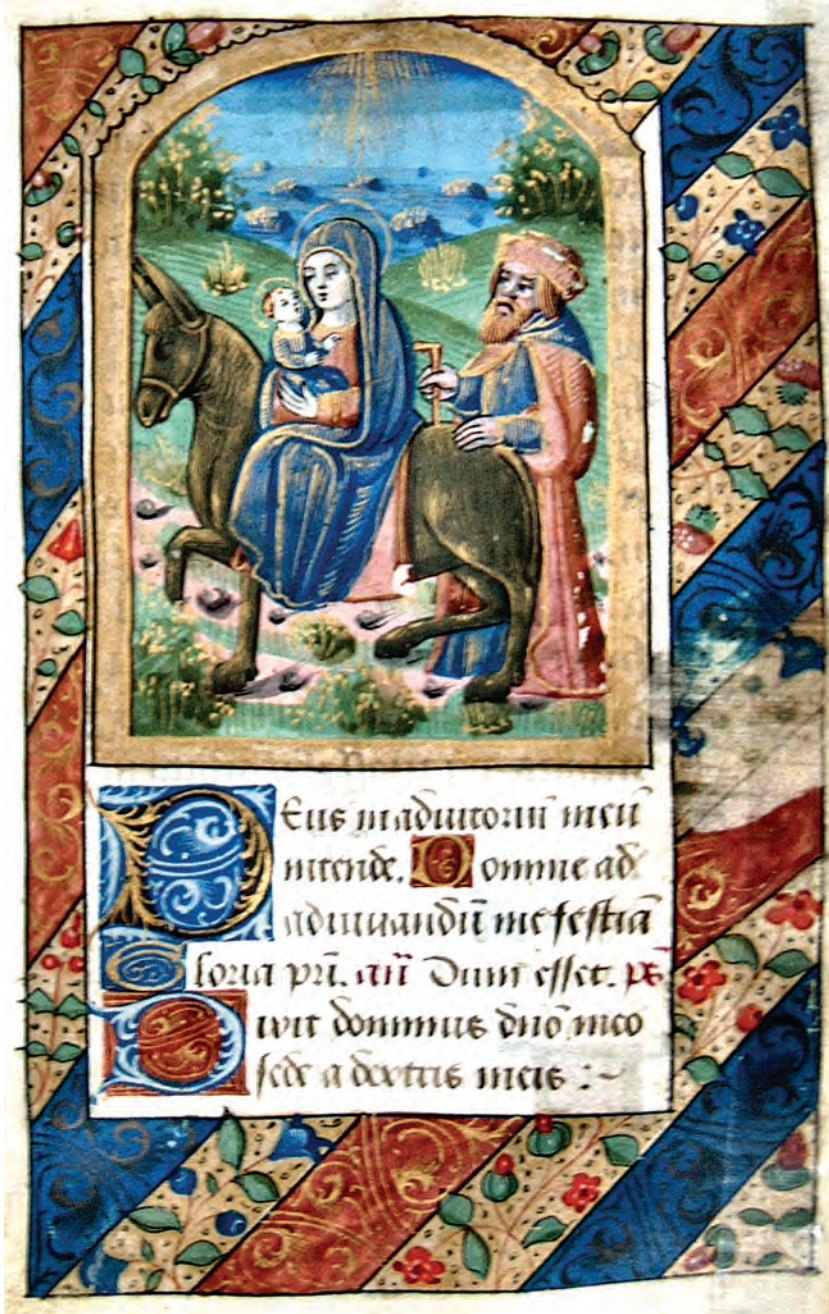 Deus in adiutoriū meū
intende. Domine ad
adiuuandū me festiā
Gloria pr̄i. añ Dum esset. ps̄
Dixit dominus dn̄o meo
sede a dextris meis :~